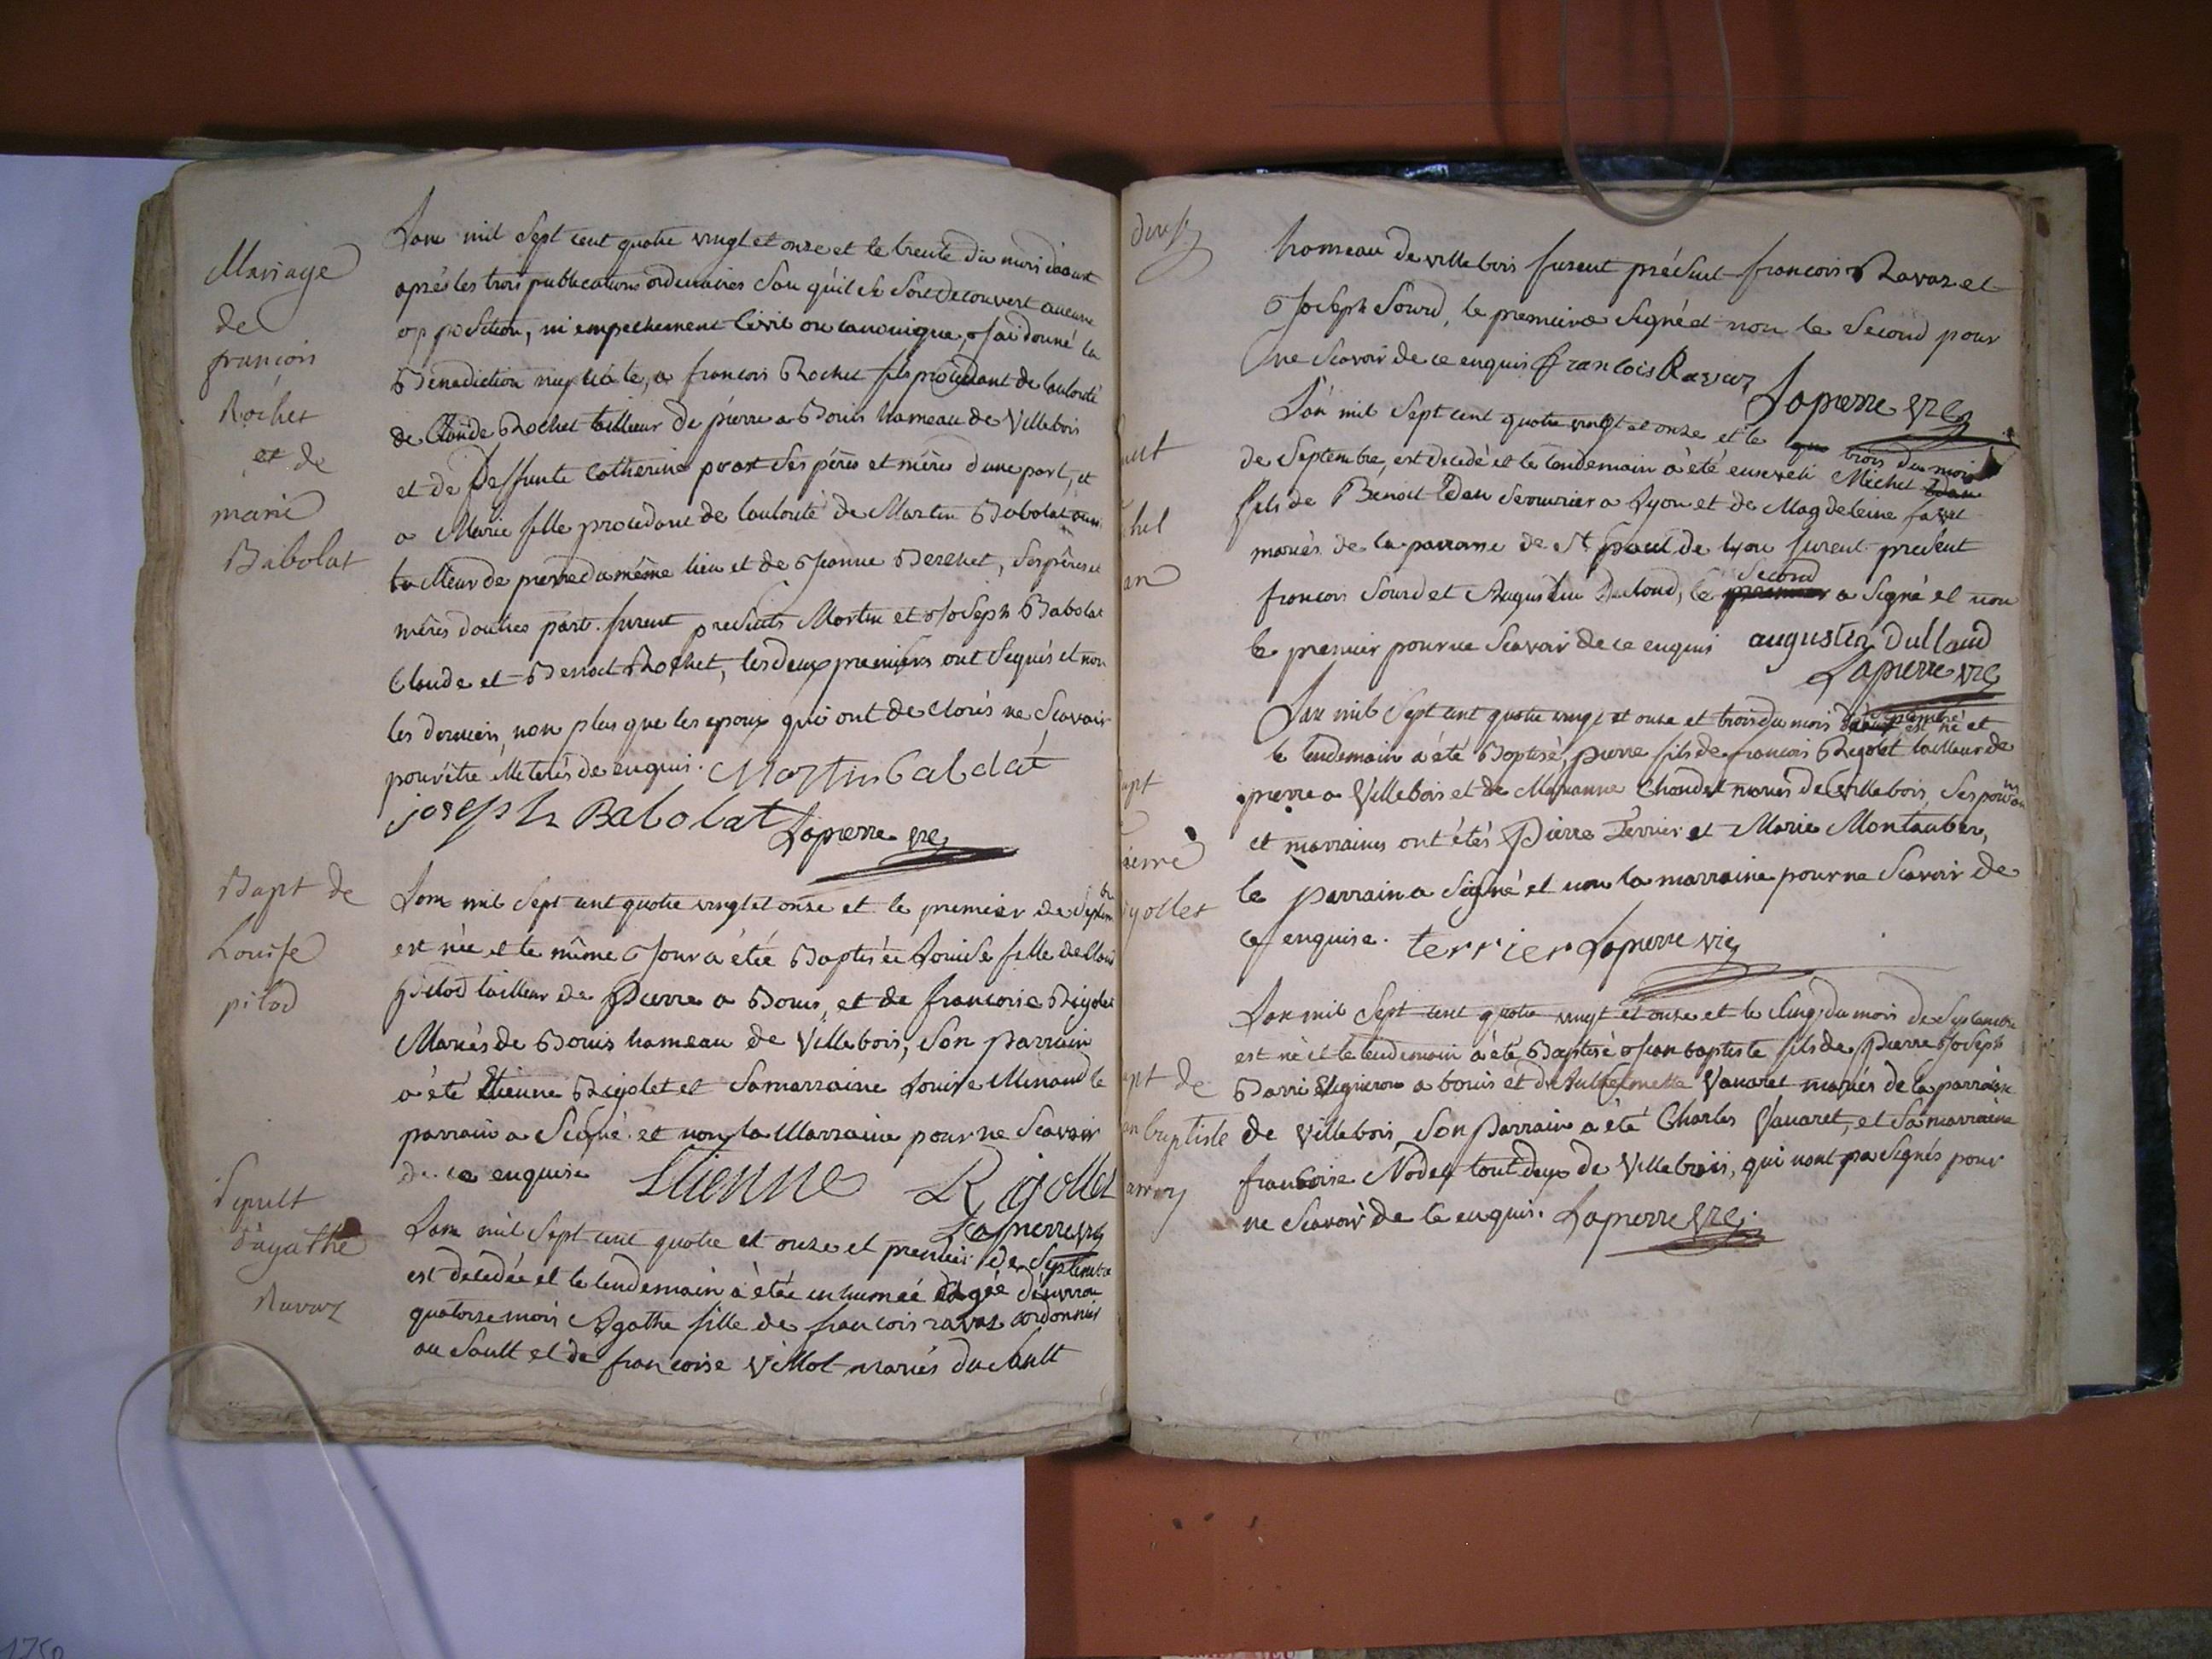 Mariage
de
françois
Rochet
et de
marie
Babolat
Lan mil Sept cent quatre vingt et onze et le trente du mois daoust
après les trois publications ordinaires San quil se Soit decouvert aucune
opposition, ni empechement Civil ou canonique, Jai donné la
Benediction nuptiale, a francois Rochet fils procedant de lautorité
de Claude Rochet tailleur de pierre a Bouis hameau de Villebois
et de Deffunte Catherine Ses pères et mères dune part, et
a Marie fille procedant de lautorité de Martin Babolat
tailleur de pierre du même lieu et de Jeanne Berchet, Ses pères et
mères dautres part. furent presents Martin et Joseph Babolat
Claude et Benoit Rochet, les deux premiers ont Signés et non
les derniers, non plus que les epoux qui ont declarés ne Scavoir
pour être illeterés de enquis. Martin babolat
joseph Babolat Lapierre vre
Bapt de
Louise
pilod
Lan mil Sept cent quatre vingt et onze et le premier de Septembre
est née et le même Jour a étée Baptisée Louise fille de Claude
pilod tailleur de Pierre a Bouis, et de francoise Rigolet
Mariés de Bouis hameau de Villebois, Son Parrain
a été Etienne Rigolet et Sa marraine Louise Minand le
parrain a Signé et non la Marraine pour ne Scavoir
de ce enquise Etienne Rigollet
Lapierre vre
Sepult
dagathe
Ravaz
Lan mil Sept cent quatre et onze et premier de Septembre
est decedée et le lendemain a étée enhumée agée denviron
quatorze mois Agathe fille de francois ravaz cordonnier
au Sault et de francoise Villot mariés du Sault
hameau de villebois furent présent francois Ravaz et
Joseph Sourd, le premier a Signé et non le Second pour
ne Scavoir de ce enquis francois Ravaz
Lapierre vre
Lan mil Sept cent quatre vingt et onze et le trois du mois
de Septembre, est decedé et le lendemain a été enseveli Michel
fils de Benoit Edan Serrurier a Lyon et de Magdeleine favet
mariés de la parroisse de St paul de lyon furent present
francois Sourd et Augustin Dulloud, le premier Second a Signé et non
le premier pour ne Scavoir de ce enquis augustin Dulloud
Lapierre vre
ierre
igollet
Lan mil Sept cent quatre vingt et onze et trois du mois Septembre est né et
le lendemain a été Baptisé, pierre fils de francois Rigolet tailleur de
pierre a Villebois et de Marianne Chaudet mariés de Villebois, Ses parrains
et marraines ont étés Pierre Terrier et Marie Montauber,
le parrain a Signé et non la marraine pour ne Scavoir de
ce enquise. terrier Lapierre vre
pt de
an baptiste
Lan mil Sept cent quatre vingt et onze et le Cinq du mois de Septembre
est né et le lendemain a été Baptisé Jean baptiste fils de Pierre Joseph
Barri Vigneron a bouis et de Vavaret mariés de la parroisse
de Villebois, Son Parrain a été Charles Vavaret, et Sa marraine
francoise Nodet tout deux de Villebois, qui nont pas Signés pour
ne Scavoir de ce enquis. Lapierre vre.